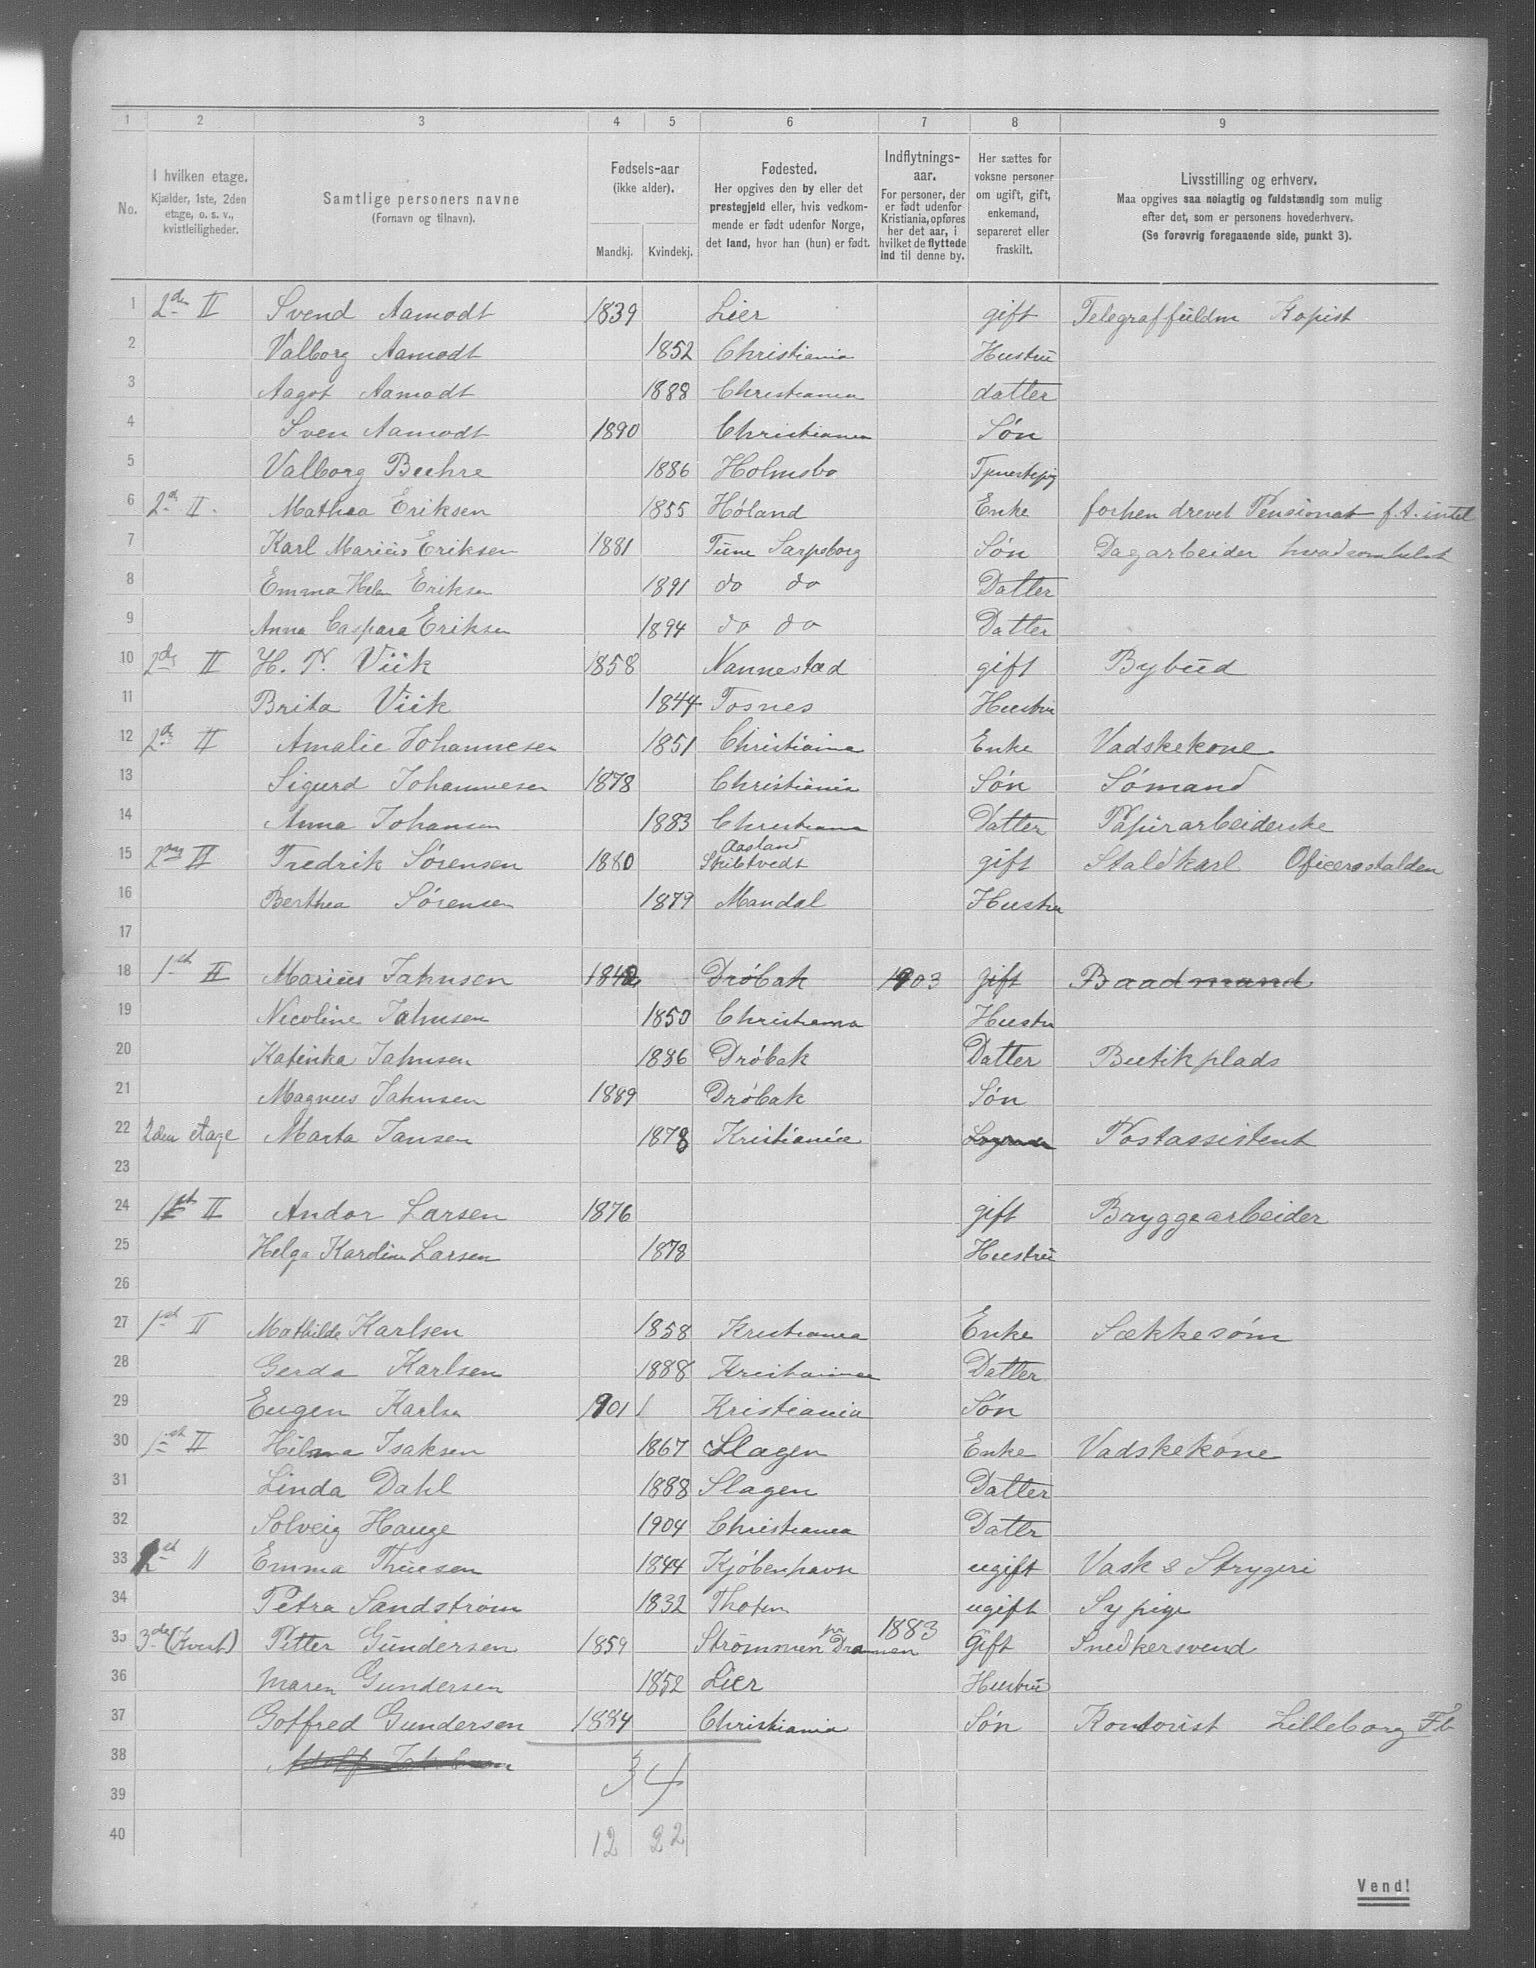 1 2 3 4 5 6 7 8 9
No.
I hvilken etage.
Kjælder, 1ste, 2den
etage, o. s. v.,
kvistleiligheder.
Samtlige personers navne
(Fornavn og tilnavn).
Fødsels-aar
(ikke alder).
Mandkj. Kvindekj.
Fødested.
Her opgives den by eller det
prestegjeld eller, hvis vedkom-
mende er født udenfor Norge,
det land, hvor han (hun) er født.
Indflytnings-
aar.
For personer, der
er født udenfor
Kristiania, opføres
her det aar, i
hvilket de flyttede
ind til denne by.
Her sættes for
voksne personer
om ugift, gift,
enkemand,
separeret eller
fraskilt.
Livsstilling og erhverv.
Maa opgives saa nøiagtig og fuldstændig som mulig
efter det, som er personens hovederhverv.
(Se forøvrig foregaaende side, punkt 3).
1 2den II Svend Aamodt 1839 Lier gift Telegraffuldm Kopist
2 Valborg Aamodt 1852 Christiania Hustru
3 Aagot Aamodt 1888 Christiania datter
4 Sven Aamodt 1890 Christiania Søn
5 Valborg Beehre 1886 Holmsbo
6 2d II. Mathea Eriksen 1855 Høland Enke forhen drevet Pensionat f.t. intet
7 Karl Marius Eriksen 1881 Tune Sarpsborg Søn Dagarbeider hvadsomhelst
8 Emma Helen Eriksen 1891 do do Datter
9 Anna Caspara Eriksen 1894 do do Datter
10 2de II H. N. Viik 1858 Nannestad gift Bybud
11 Brita Viik 1844 Tosnes Hustru
12 2de II Amalie Johannesen 1851 Christiania Enke Vadskekone
13 Sigurd Johannesen 1878 Christiania Søn Sømand
14 Anna Johansen 1883 Christiania Datter Papirarbeiderske
Aasland
15 II Fredrik Sørensen 1880 Skibtvedt gift Staldkarl Oficersstalden
16 Berthea Sørensen 1879 Mandal Hustru
17
18 1st II Marius Jahnsen 1842 Drøbak 1903 gift Baadmand
19 Nicoline Jahnsen 1850 Christiania Hustru
20 Katinka Jahnsen 1886 Drøbak Datter Butikplads
21 Magnus Jahnsen 1889 Drøbak Søn
22 2den etage Marta Jansen 1878 Kristiania Postassistent
23
24 1st II Andor Larsen 1876 gift Bryggearbeider
25 Helga Karoline Larsen 1878 Hustru
26
27 1st II Mathilde Karlsen 1858 Kristiania Enke Sækkesøm
28 Gerda Karlsen 1888 Kristiania Datter
29 Eugen Karlsen 1901 Kristiania Søn
30 1st II Hilma Isaksen 1867 Slagen Enke Vadskekone
31 Linda Dahl 1888 Slagen Datter
32 Solveig Hauge 1904 Christiania Datter
33 II Emma Thuesen 1844 Kjøbenhavn ugift Vask & Strygeri
34 Petra Sandstrøm 1832 Thoten ugift Sypige
35 3de (Kvist) Petter Gundersen 1859 Strømmen pr Drammen 1883 Gift Snedkersvend
36 Maren Gundersen 1852 Lier Hustru
37 Gotfred Gundersen 1884 Christiania Søn Kontorist Lilleborg Fb
38
39 34
40 12 22
Vend!